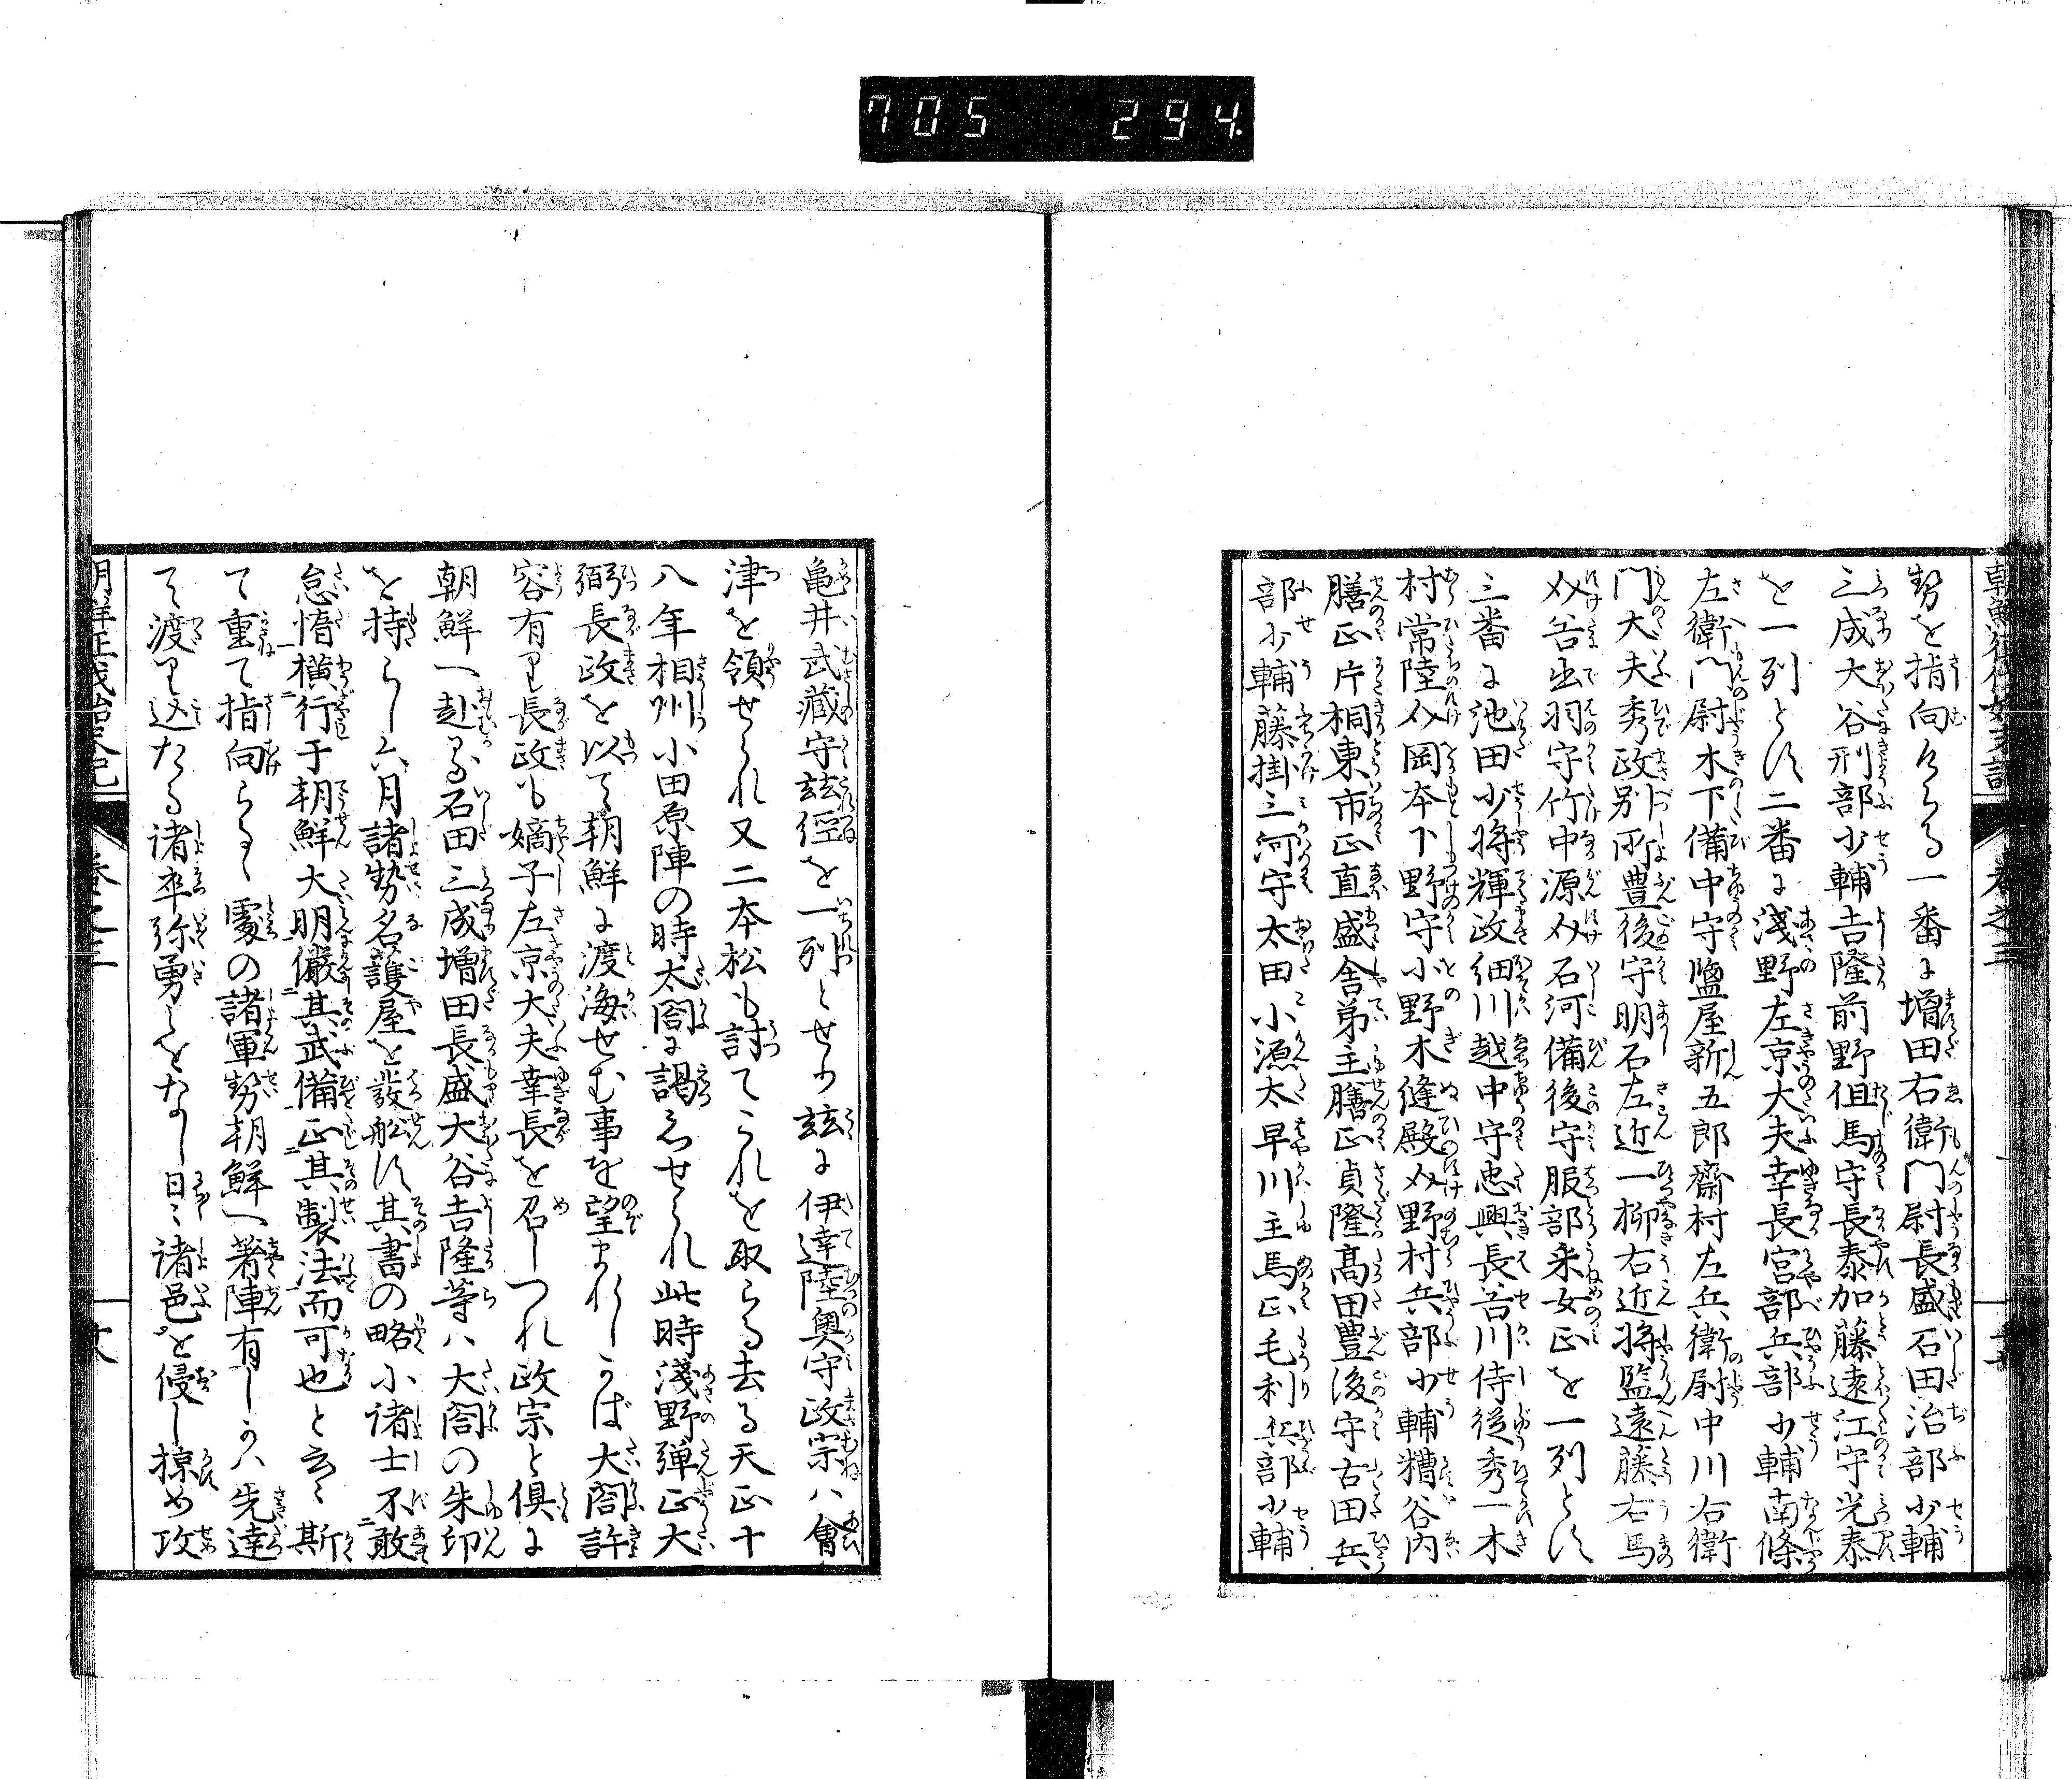 705 294
朝鮮征伐始末記 巻之三
勢を指向らる一番に増田右衛門尉長盛石田治部少輔
三成大谷刑部少輔吉隆前野但馬守長泰加藤遠江守光泰
を一列とす二番に浅野左京大夫幸長宮部兵部少輔南條
左衛門尉木下備中守鹽屋新五郎齋村左兵衛尉中川右衛
門大夫秀政別所豊後守明石左近一柳右近将監遠藤右馬
助出羽守竹中源助石河備後守服部采女正を一列とす
三番に池田少将輝政細川越中守忠興長谷川侍従秀一木
村常陸介岡本下野守小野木縫殿助野村兵部少輔糟谷内
膳正片桐東市正直盛舎弟主膳正貞隆髙田豊後守古田兵
部少輔藤掛三河守太田小源太早川主馬正毛利兵部少輔
亀井武藏守玆經を一列とせり玆に伊達陸奥守政宗ハ會
津を領せられ又二本松も討てこれを取らる去る天正十
八年相州小田原陣の時太閤に謁せられ此時淺野弾正大
弼長政を以て朝鮮に渡海せむ事を望まれしかば大閤許
容有り長政も嫡子左京大夫幸長を召しつれ政宗と倶に
朝鮮へ赴る石田三成増田長盛大谷吉隆等ハ大閤の朱印
を持らし六月諸勢名護屋を發船す其書の略小諸士不敢
怠惰横行于朝鮮大明儼其武備正其製法而可也と云々斯
て重て指向らるゝ處の諸軍勢朝鮮へ著陣有しかハ先達
て渡り込たる諸卒弥勇をなし日々諸邑を侵し掠め攻
朝鮮征伐始末記 巻之三